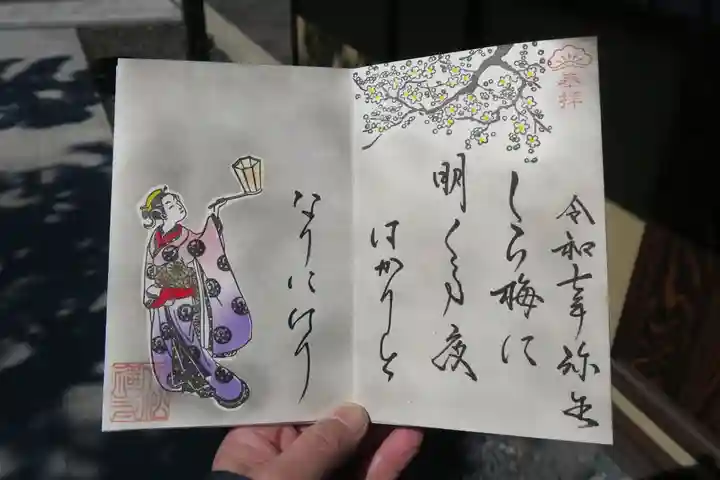 奉拝
令和七年弥生
しら梅に
明くる夜
はかりと
なりにけり